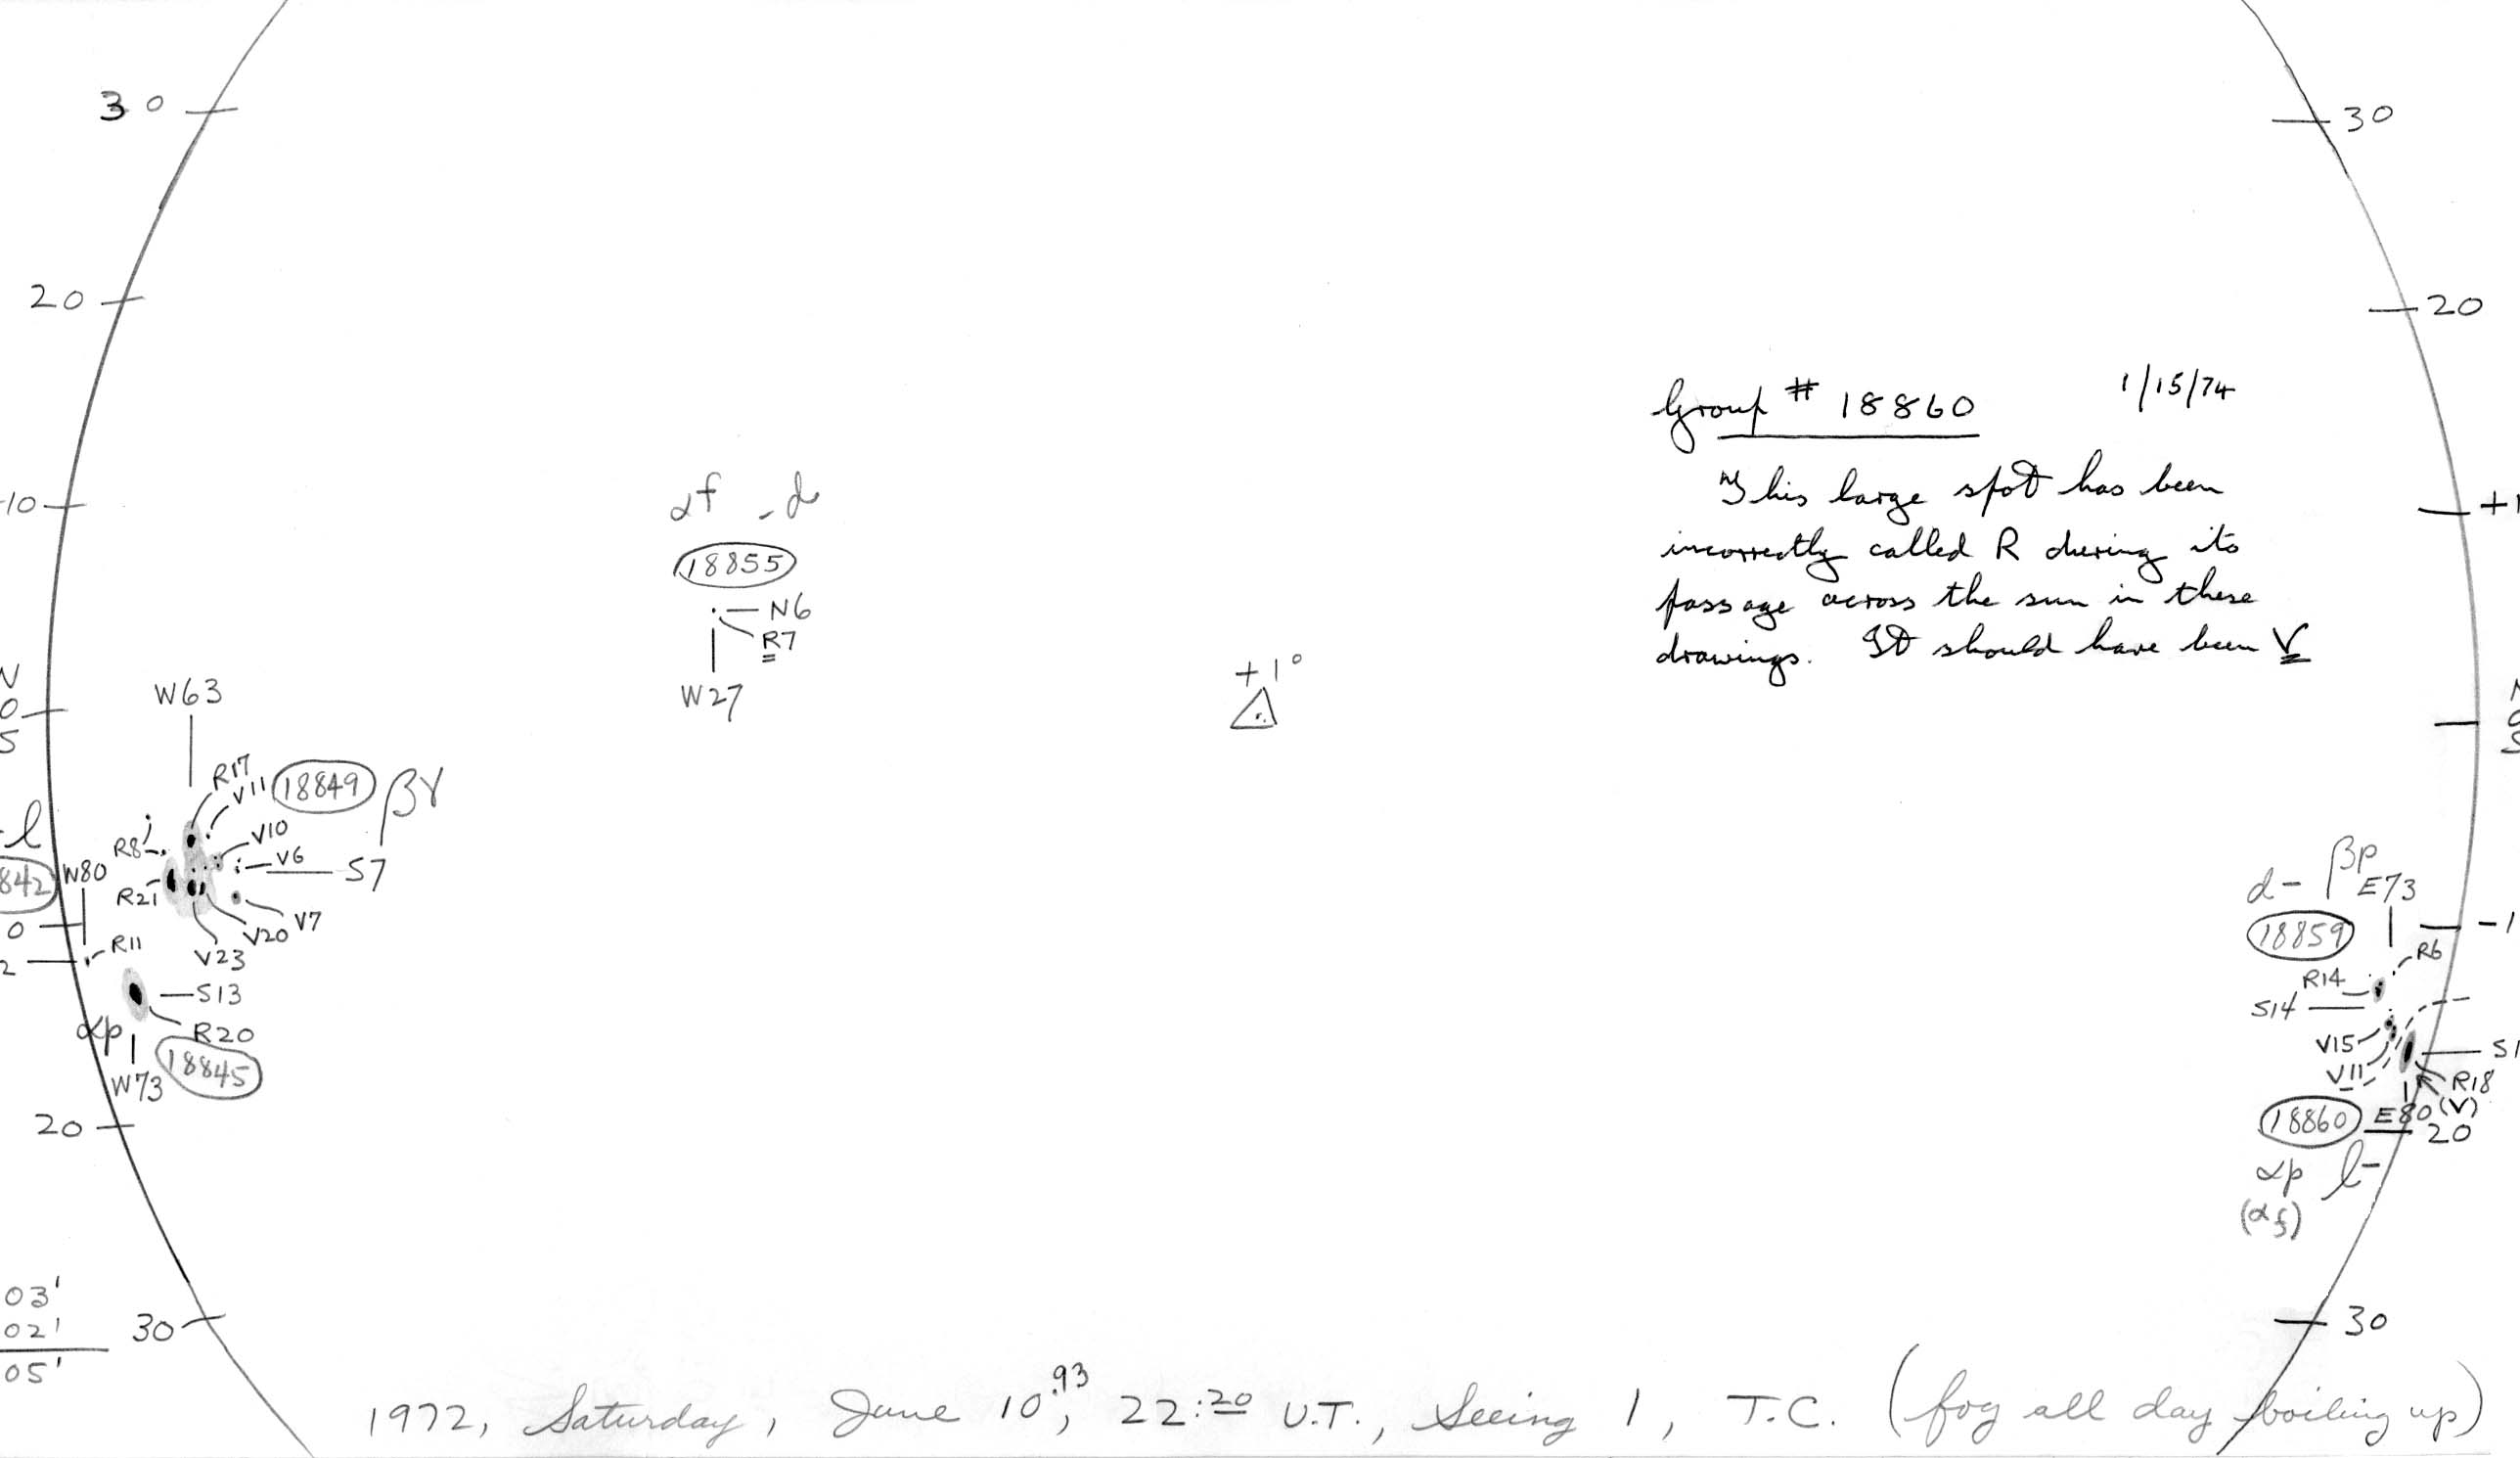 30
30
20
20
Group # 18860 1/15/74
This large spot has been
incorrectly called R during its
passage across the sun in these
drawings. It should have been V
αf -d
18855
N6
R7
W27
+1°
10
+1
N
0
S
W63
R17
V11
18849
βγ
R8
V10
V6
S7
l
842
W80
R21
V7
V20
V23
0
R11
2
S13
αp
R20
W73
18845
20
d- βp
E73
18859
-1
R6
R14
S14
V15
S1
V11
R18
(V)
18860
E80
20
αp l-
(αf)
03'
02'
05'
30
30
1972, Saturday, June 10.93, 22:20 U.T., Seeing 1, T.C. (fog all day boiling up)